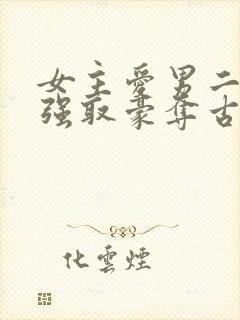 女主愛男二
强取豪奪古
化雲煙